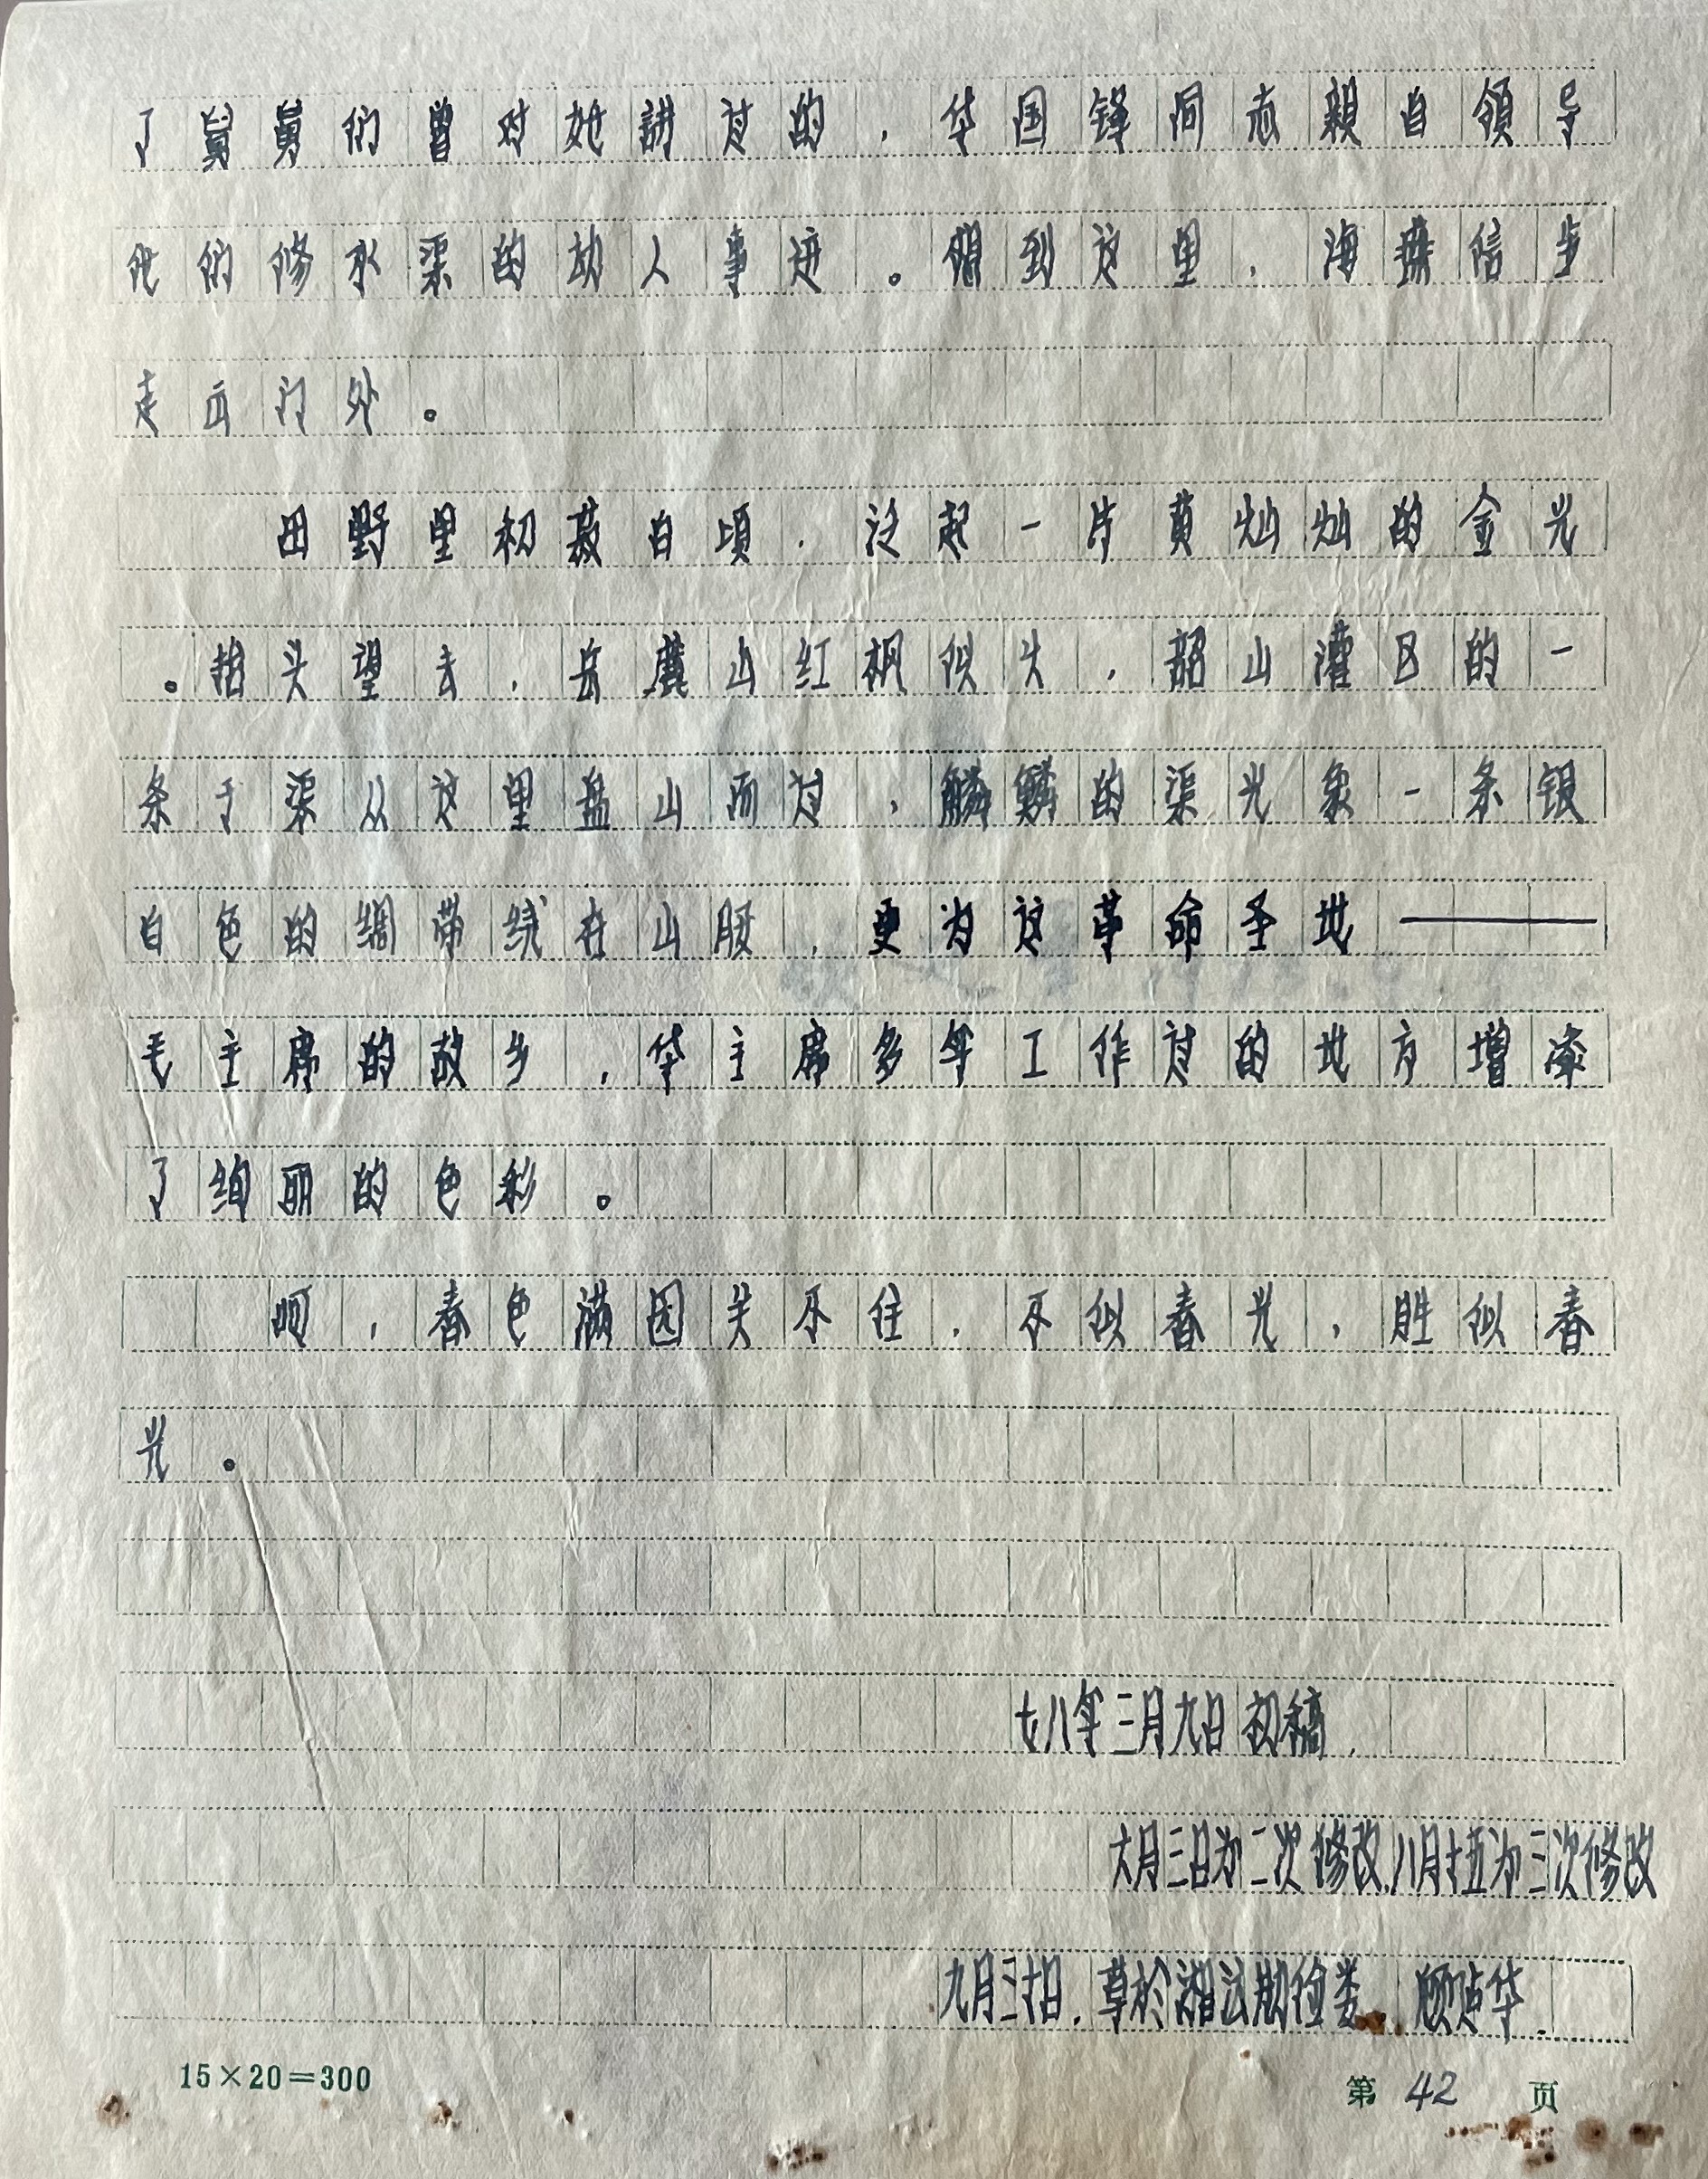 了舅舅们曾对她讲过的，华国锋同志親自領导
他们修水渠的动人事迹。想到这里，海燕信步
走出门外。
田野里初薐百頃，泛起一片黄灿灿的金光
。抬头望去，岳麓山红枫似火，韶山灌区的一
条干渠从这里盘山而过，鳞鳞的渠光象一条银
白色的绸带绕在山腰，更为这革命圣地——
毛主席的故乡，华主席多年工作过的地方增添
了绚丽的色彩。
呵，春色满园关不住，不似春光，胜似春
光。
七八年三月九日初稿.
六月三日为二次修改.八月十五为三次修改
九月三十日.草於湘沅 顾 华.
15×20=300
第 42 页